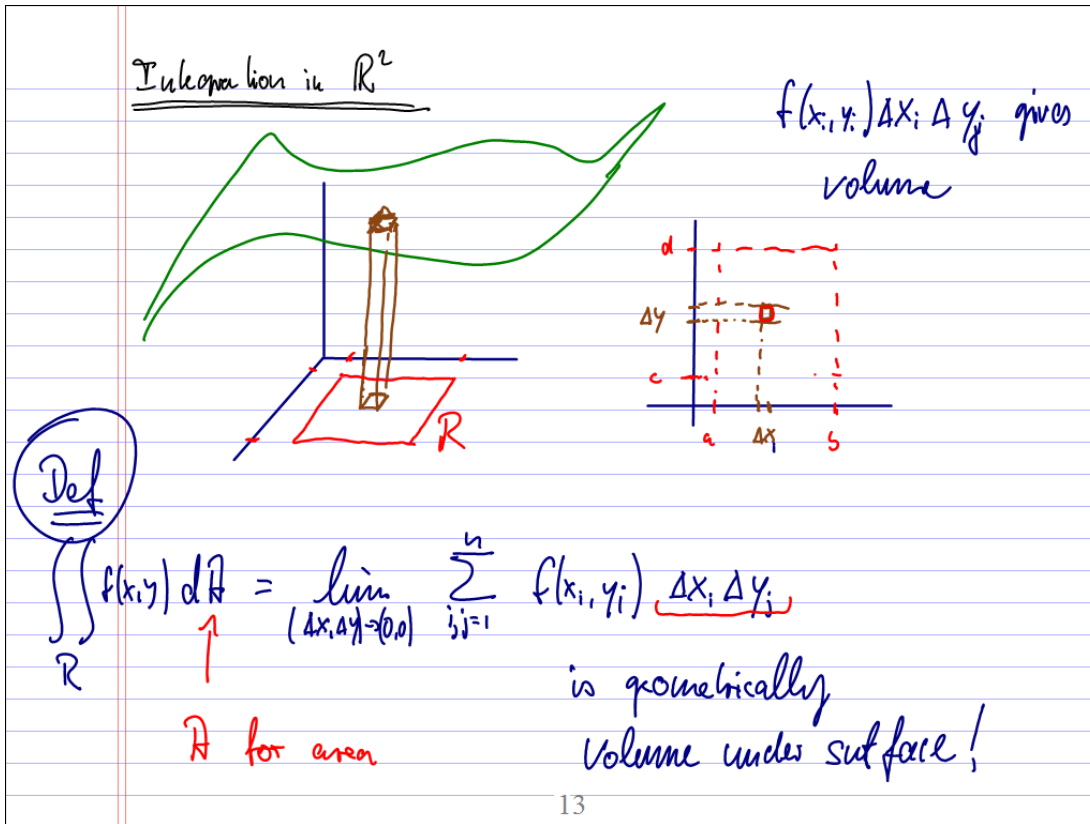 Integration in ℝ²
f(x_i, y_i) Δx_i Δy_j gives
volume
d
Δy
c
a Δx_i b
R
Def
∬_R f(x,y) dA = lim_{(Δx,Δy)→(0,0)} ∑_{i,j=1}^{n} f(x_i, y_j) Δx_i Δy_j
A for area
is geometrically
volume under surface!
13